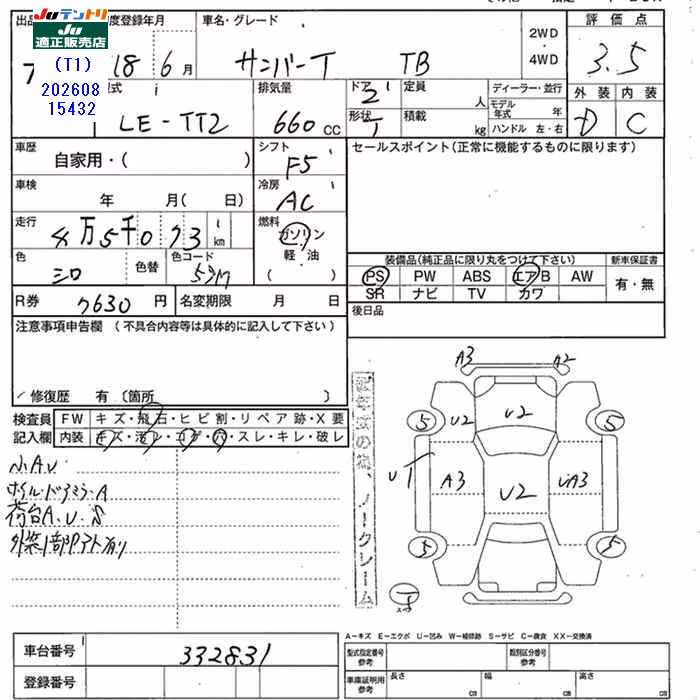 JUテントリ
JU
適正販売店
(T1)
202608
15432
出品
度登録年月
車名・グレード
2WD
4WD
評価点
18 6月
サンバーT TB
3.5
型式
排気量
ドア
定員
ディーラー・並行
外装
内装
2
人
モデル年式
年
形状
積載
kg
ハンドル 左・右
LE-TT2
660 CC
T
D
C
車歴
自家用・( )
シフト
F5
セールスポイント(正常に機能するものに限ります)
車検
年 月(日 )
冷房
AC
走行
4万5千0 73 km
燃料
ガソリン
軽 油
( )
色
シロ
色替
色コード
51M
装備品(純正品に限り丸をつけて下さい)
新車保証書
PS PW ABS エアB AW
SR ナビ TV カワ
有・無
R券
7630 円
名変期限
月 日
後日品
注意事項申告欄(不具合内容等は具体的に記入して下さい)
修復歴 有(箇所 )
検査員
記入欄
FW キズ・飛石・ヒビ割・リペア跡・X要
内装 キズ・汚レ・コゲ・穴・スレ・キレ・破レ
小A.U
ホイル・ドアミラーA
荷台A.U.S
外装1部Pアト有り
ノークレーム
A3 A2
5 U2 U2 5
UT A3 U2 UA3
5 5
A-キズ E-エクボ U-凹み W-補修跡 S-サビ C-腐食 XX-交換済
車台番号
332831
登録番号
型式指定番号
参考
類別区分番号
参考
車庫証明用
参考
長さ
cm
幅
cm
高さ
cm